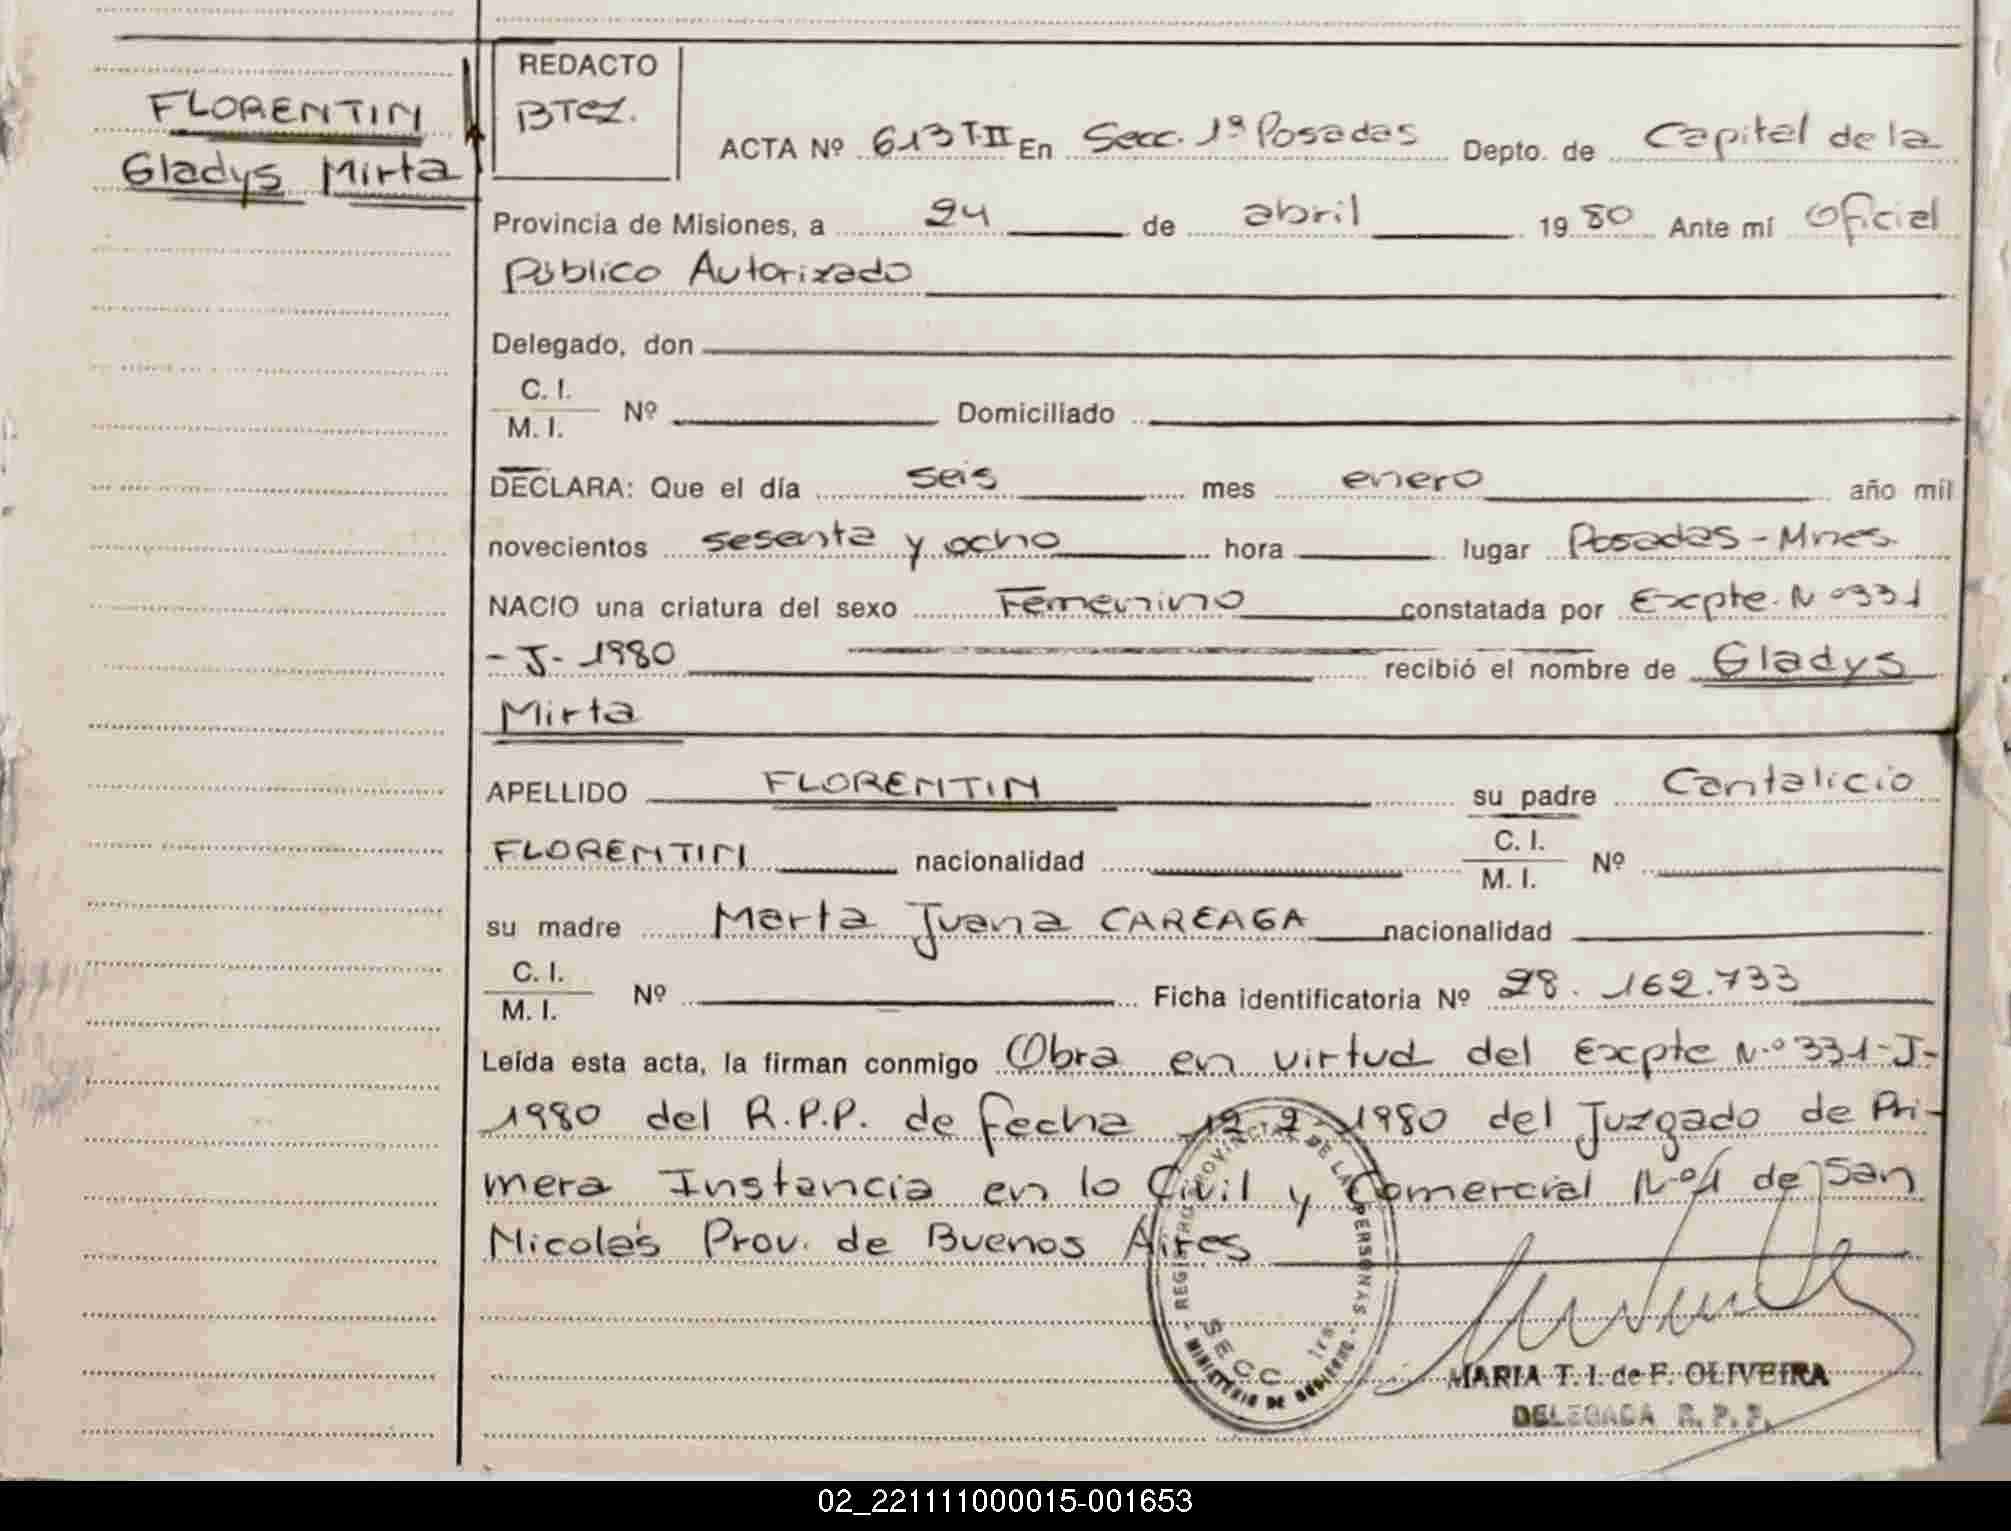 FLORENTIN
Gladys Mirta
REDACTO
BTez.
ACTA Nº 613 T-II En Secc. 1ª Posadas Depto. de Capital de la
Provincia de Misiones, a 24 de abril 1980 Ante mí Oficial
Público Autorizado
Delegado, don
C. I.
M. I. Nº Domiciliado
DECLARA: Que el día seis mes enero año mil
novecientos sesenta y ocho hora lugar Posadas - Mnes
NACIO una criatura del sexo Femenino constatada por Excpte. Nº 331
- J - 1980 recibió el nombre de Gladys
Mirta
APELLIDO FLORENTIN su padre Cantalicio
FLORENTIN nacionalidad C. I. M. I. Nº
su madre Marta Juana CAREAGA nacionalidad
C. I.
M. I. Nº Ficha identificatoria Nº 28.162.733
Leída esta acta, la firman conmigo Obra en virtud del Excpte N.º 331-J-
1980 del R.P.P. de fecha 12-2-1980 del Juzgado de Pri-
mera Instancia en lo Civil y Comercial Nº 1 de San
Nicolás Prov. de Buenos Aires
REGISTRO PROVINCIAL DE LAS PERSONAS
SECC. 1ra.
MINISTERIO DE GOBIERNO
MARIA T. I. de F. OLIVEIRA
DELEGADA R. P. P.
02_221111000015-001653